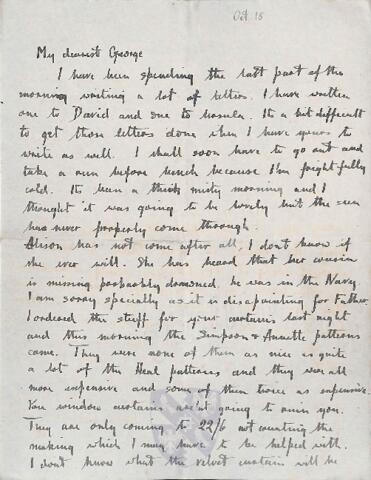 Oct 15
My dearest George
I have been spending the last part of this
morning writing a lot of letters. I have written
one to David and one to Ursula. It's a bit difficult
to get those letters done when I have yours to
write as well. I shall soon have to go out and
take a run before lunch because I'm frightfully
cold. Its been a thick misty morning and I
thought it was going to be lovely but the sun
has never properly come through.
Alison has not come after all, I don't know if
she ever will. She has heard that her cousin
is missing probably drowned, he was in the Navy.
I am sorry specially as it is disapointing for Father.
I ordered the stuff for your curtains last night
and this morning the Simpson & Annette patterns
came. They were none of them as nice as quite
a lot of the Heal patterns and they were all
more expensive and some of them twice as expensive.
Your window curtains arn't going to ruin you.
They are only coming to 22/6 not counting the
making which I may have to be helped with.
I don't know what the velvet curtain will be